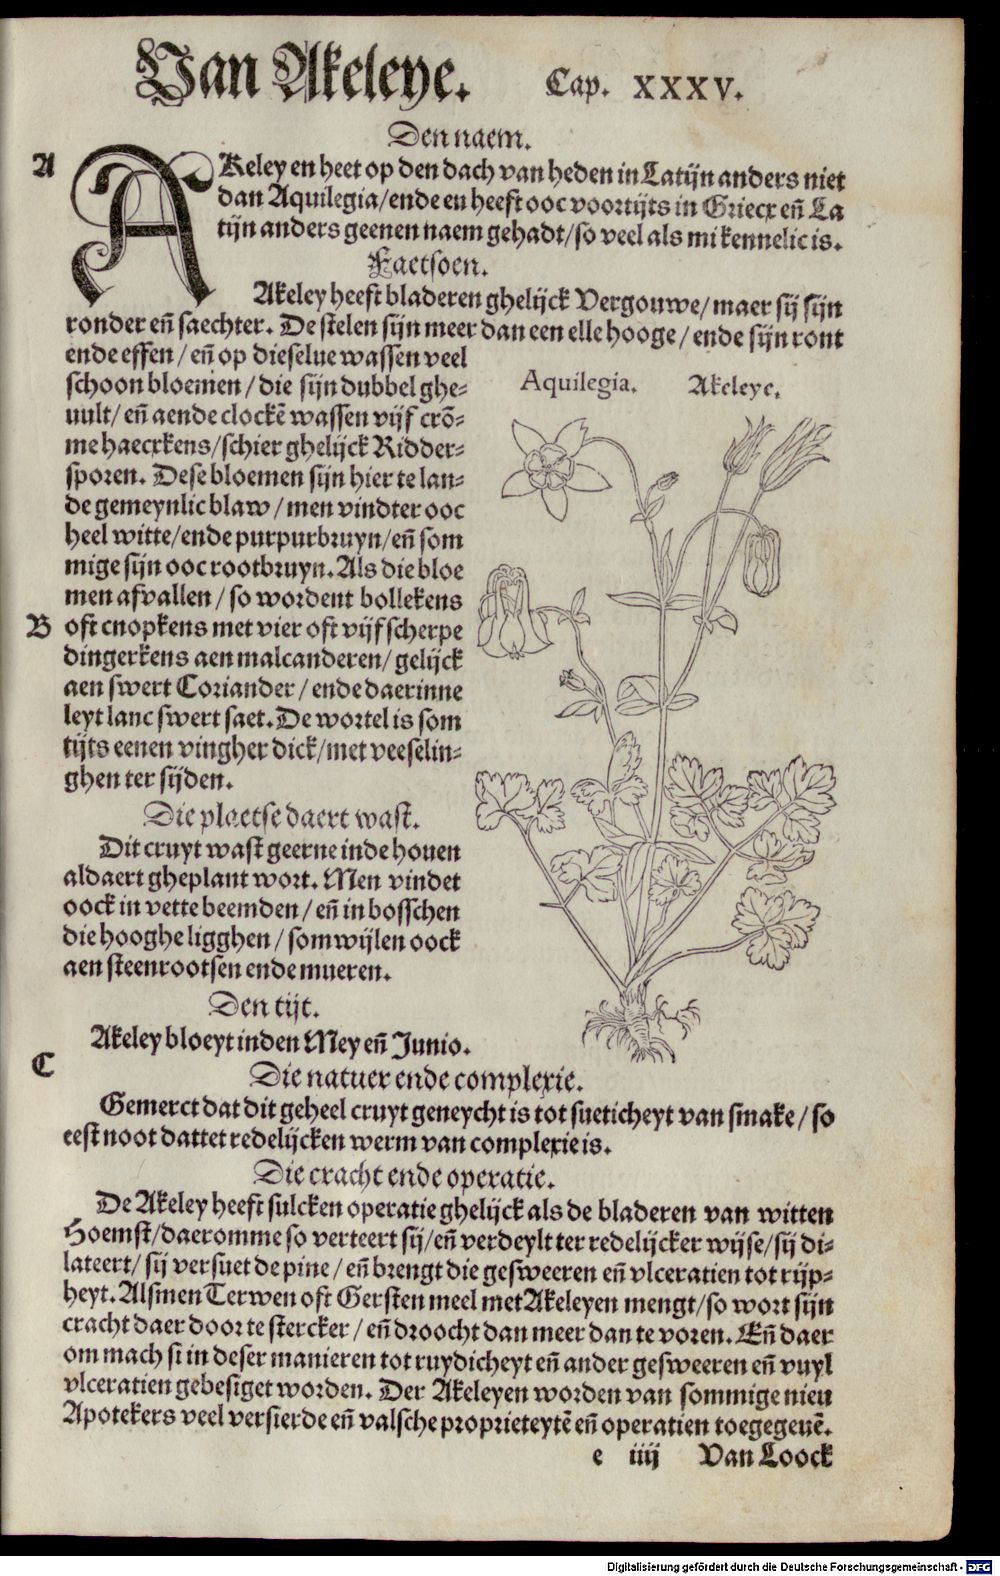 Van Akeleye. Cap. XXXV.
Den naem.
A
AKeley en heet op den dach van heden in Latijn anders niet
dan Aquilegia/ende en heeft ooc voortijts in Griecx en̄ La
tijn anders geenen naem gehadt/so veel als mi kennelic is.
Faetsoen.
Akeley heeft bladeren ghelijck Vergouwe/maer sij sijn
ronder en̄ saechter. De stelen sijn meer dan een elle hooge/ende sijn ront
ende effen/en̄ op dieselue wassen veel
schoon bloemen/die sijn dubbel ghe-
uult/en̄ aende clockē wassen vijf crō-
me haecxkens/schier ghelijck Ridder-
sporen. Dese bloemen sijn hier te lan-
de gemeynlic blaw/men vindter ooc
heel witte/ende purpurbruyn/en̄ som
mige sijn ooc rootbruyn. Als die bloe
men afvallen/so wordent bollekens
B
oft cnopkens met vier oft vijf scherpe
dingerkens aen malcanderen/gelijck
aen swert Coriander/ende daerinne
leyt lanc swert saet. De wortel is som
tijts eenen vingher dick/met veeselin-
ghen ter sijden.
Aquilegia. Akeleye.
Die plaetse daert wast.
Dit cruyt wast geerne inde houen
aldaert gheplant wort. Men vindet
oock in vette beemden/en̄ in bosschen
die hooghe ligghen/somwijlen oock
aen steenrootsen ende mueren.
Den tijt.
Akeley bloeyt inden Mey en̄ Junio.
C
Die natuer ende complexie.
Gemerct dat dit geheel cruyt geneycht is tot sueticheyt van smake/so
eest noot dattet redelijcken werm van complexie is.
Die cracht ende operatie.
De Akeley heeft sulcken operatie ghelijck als de bladeren van witten
Hoemst/daeromme so verteert sij/en̄ verdeylt ter redelijcker wijse/sij di-
lateert/sij versuet de pine/en̄ brengt die gesweeren en̄ vlceratien tot rijp-
heyt. Alsmen Terwen oft Gersten meel met Akeleyen mengt/so wort sijn
cracht daer door te stercker/en̄ droocht dan meer dan te voren. En̄ daer
om mach si in deser manieren tot ruydicheyt en̄ ander gesweeren en̄ vuyl
vlceratien gebesiget worden. Der Akeleyen worden van sommige nieu
Apotekers veel versierde en̄ valsche proprieteytē en̄ operatien toegegeuē.
e iiij Van Loock
Digitalisierung gefördert durch die Deutsche Forschungsgemeinschaft - DFG